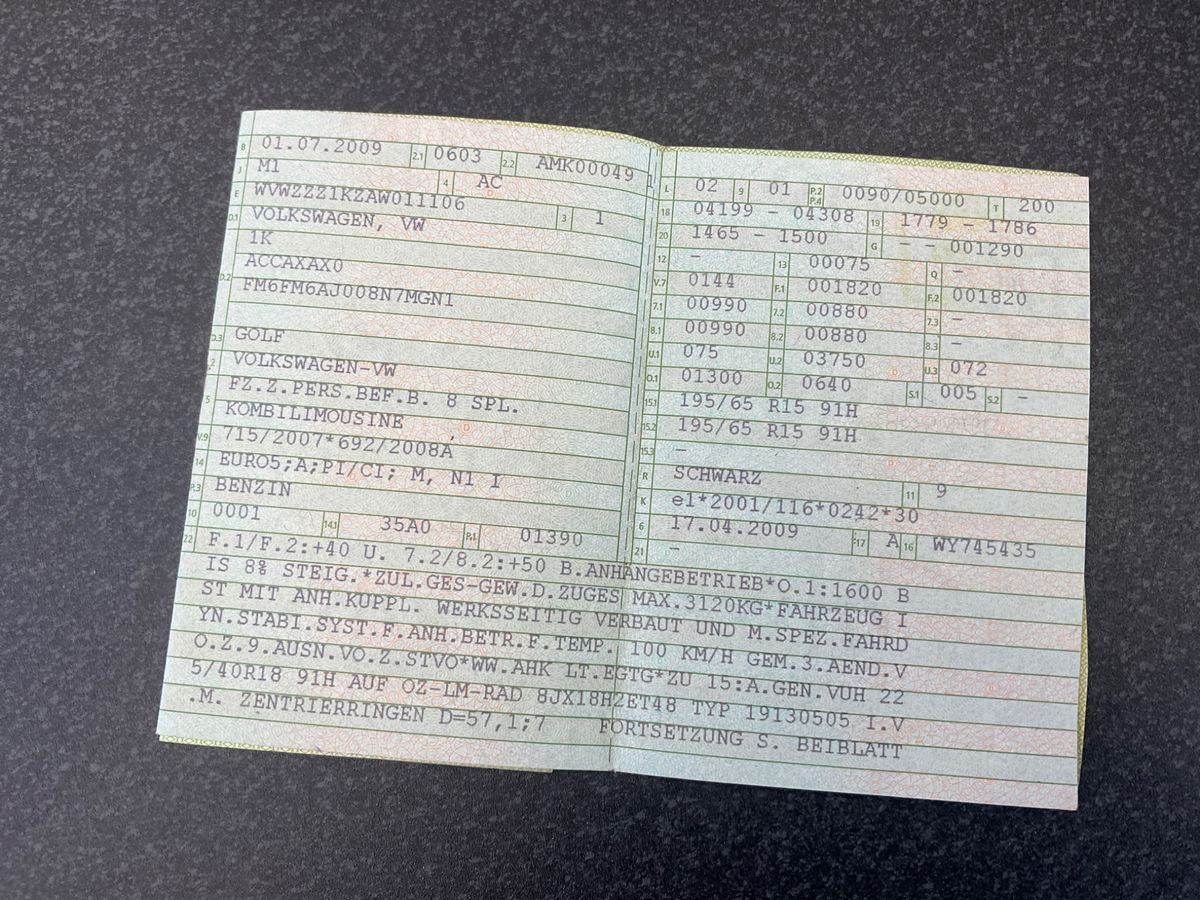 B 01.07.2009 2.1 0603 2.2 AMK00049 1
J M1 4 AC
E WVWZZZ1KZAW011106 3 1
D.1 VOLKSWAGEN, VW
1K
D.2 ACCAXAX0
FM6FM6AJ008N7MGN1
D.3 GOLF
2 VOLKSWAGEN-VW
FZ.Z.PERS.BEF.B. 8 SPL.
5 KOMBILIMOUSINE
V.9 715/2007*692/2008A
14 EURO5;A;PI/CI; M, N1 I
P.3 BENZIN
10 0001 14.1 35A0 P.1 01390
L 02 9 01 P.2 P.4 0090/05000 T 200
18 04199 - 04308 19 1779 - 1786
20 1465 - 1500 G - - 001290
12 - 13 00075 Q -
V.7 0144 F.1 001820 F.2 001820
7.1 00990 7.2 00880 7.3 -
8.1 00990 8.2 00880 8.3 -
U.1 075 U.2 03750 U.3 072
O.1 01300 O.2 0640 S.1 005 S.2 -
15.1 195/65 R15 91H
15.2 195/65 R15 91H
15.3 -
R SCHWARZ 11 9
K e1*2001/116*0242*30
6 17.04.2009 17 A 16 WY745435
21 -
22 F.1/F.2:+40 U. 7.2/8.2:+50 B.ANHÄNGEBETRIEB*O.1:1600 B
IS 8% STEIG.*ZUL.GES-GEW.D.ZUGES MAX.3120KG*FAHRZEUG I
ST MIT ANH.KUPPL. WERKSSEITIG VERBAUT UND M.SPEZ.FAHRD
YN.STABI.SYST.F.ANH.BETR.F.TEMP. 100 KM/H GEM.3.AEND.V
O.Z.9.AUSN.VO.Z.STVO*WW.AHK LT.EGTG*ZU 15:A.GEN.VUH 22
5/40R18 91H AUF OZ-LM-RAD 8JX18H2ET48 TYP 19130505 I.V
.M. ZENTRIERRINGEN D=57,1;7 FORTSETZUNG S. BEIBLATT